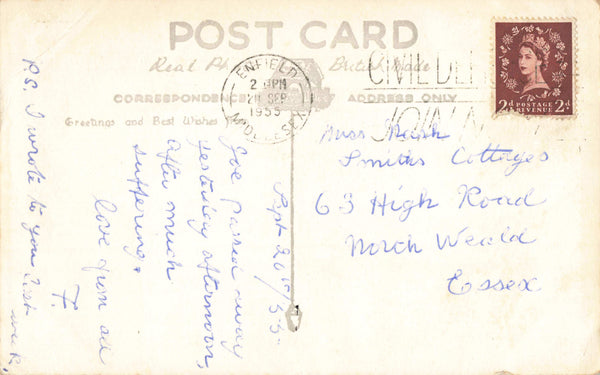 POST CARD
Real Ph British Made
CORRESPONDENCE ADDRESS ONLY
Greetings and Best Wishes f
ENFIELD
2 PM
20 SEP
1955
MIDDLESEX
CIVIL DE
JOIN N
2d POSTAGE REVENUE 2d
Sept 20th/55.
Joe passed away
yesterday afternoon,
after much
suffering.
love from all
F.
P.S. I wrote to you last
week.
Miss
Smiths Cottages
63 High Road
North Weald
Essex